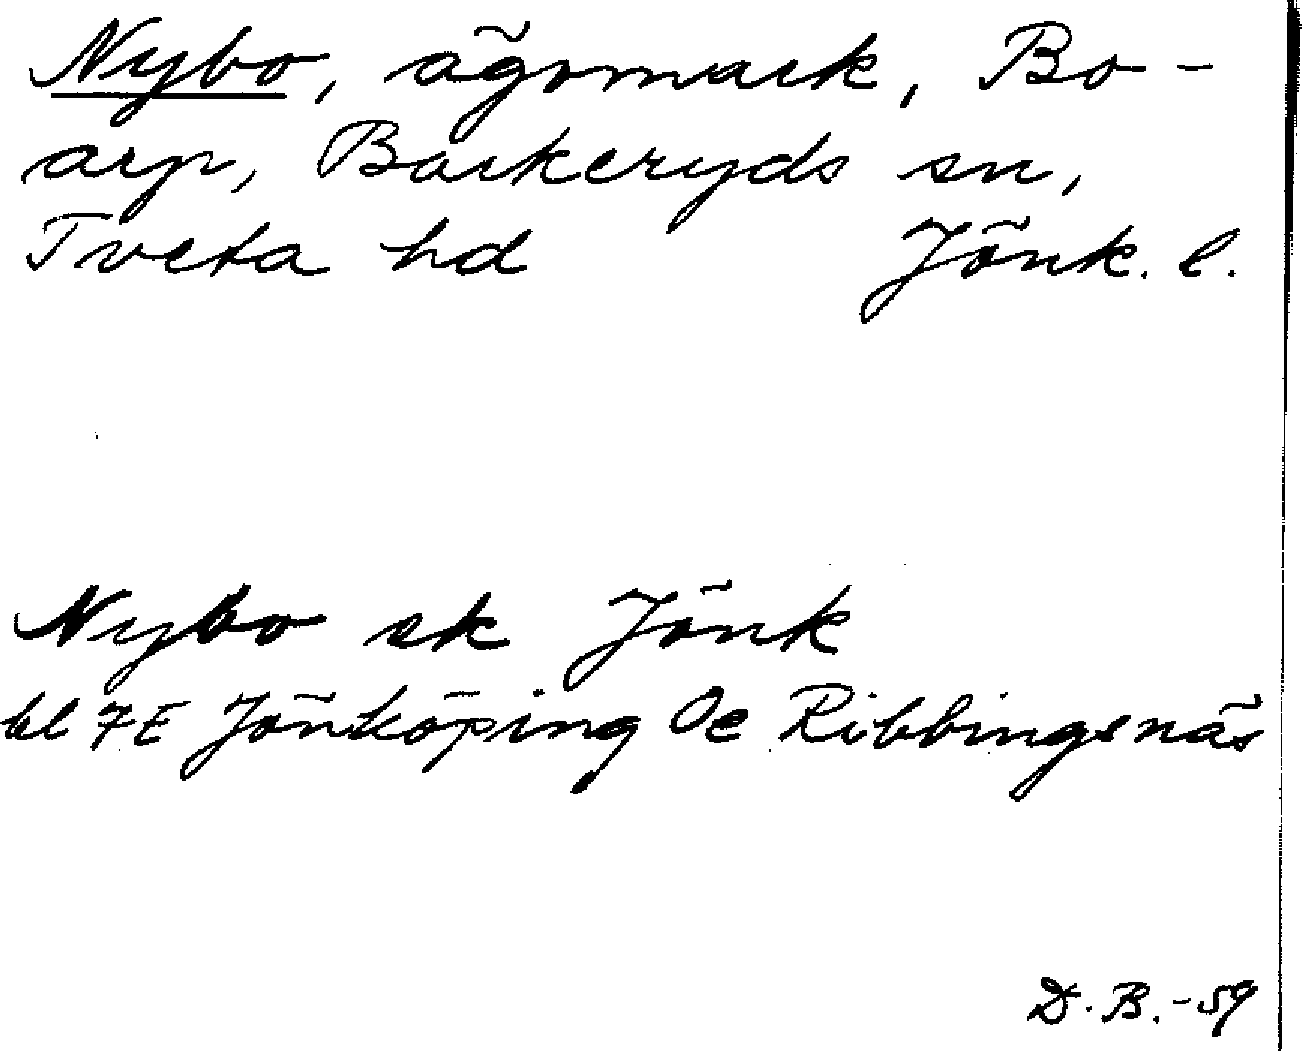 Nybo, ägomark, Bo-
arp, Barkeryds sn,
Tveta hd Jönk. l.
Nybo sk Jönk
bl 7E Jönköping Oe Ribbingsnäs
D.B.-59